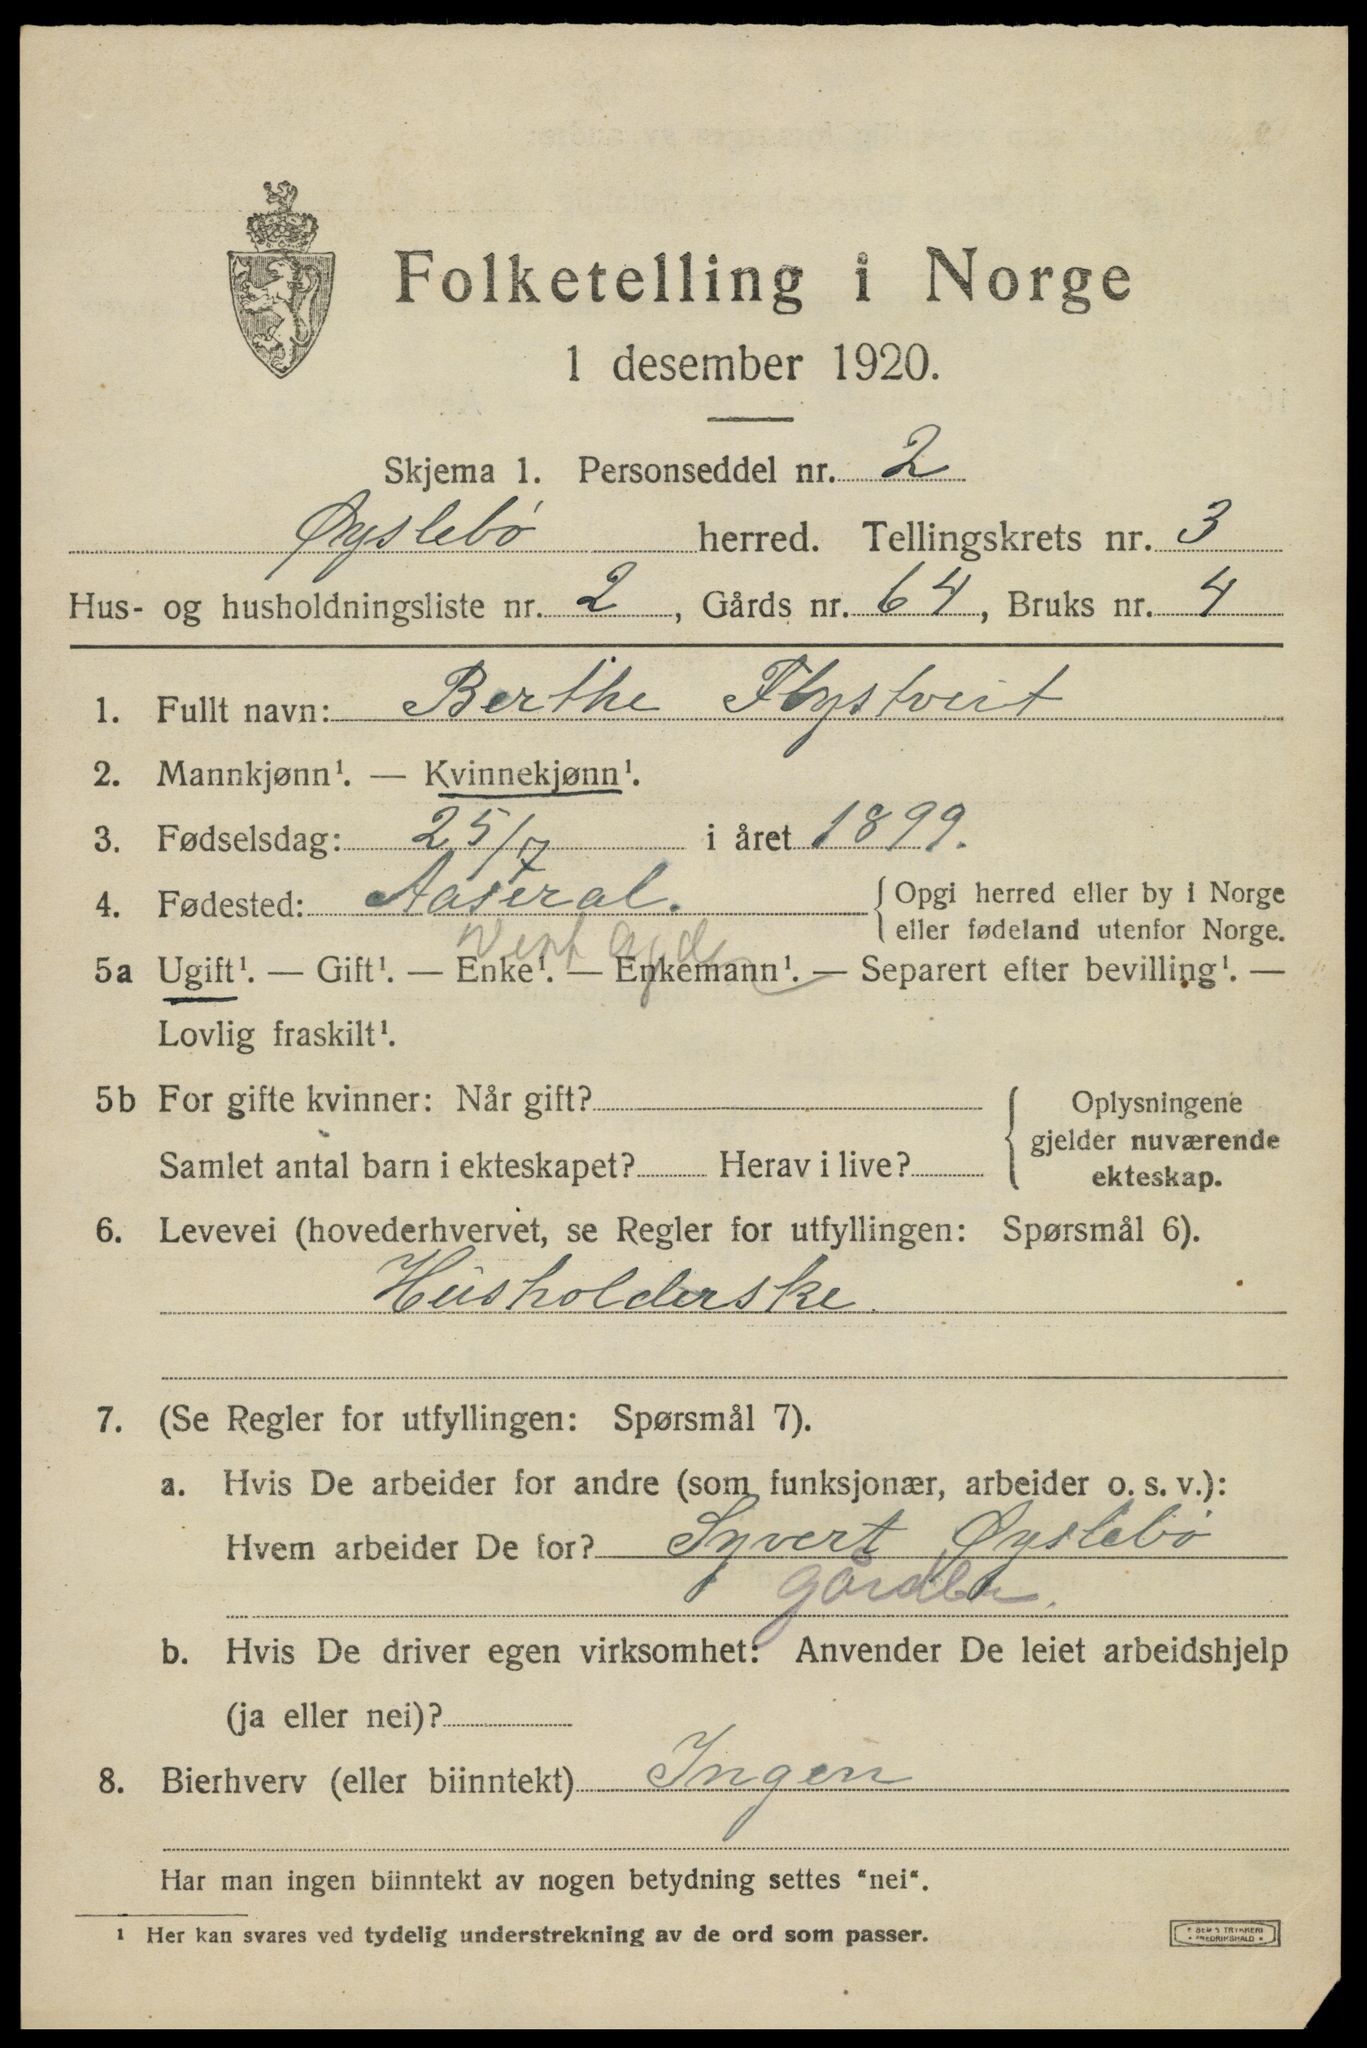 Folketelling i Norge
1 desember 1920.
Skjema 1. Personseddel nr. 2
Øyslebø herred. Tellingskrets nr. 3
Hus- og husholdningsliste nr. 2, Gårds nr. 64, Bruks nr. 4
1. Fullt navn: Berthe Flystveit
2. Mannkjønn¹. — Kvinnekjønn¹.
3. Fødselsdag: 25/7 i året 1899.
4. Fødested: Aaseral. Opgi herred eller by i Norge
eller fødeland utenfor Norge.
Vest Agder
5a Ugift¹. — Gift¹. — Enke¹. — Enkemann¹. — Separert efter bevilling¹. —
Lovlig fraskilt¹.
5b For gifte kvinner: Når gift? Oplysningene
gjelder nuværende
Samlet antal barn i ekteskapet? Herav i live?
ekteskap.
6. Levevei (hovederhvervet, se Regler for utfyllingen: Spørsmål 6).
Husholderske.
7. (Se Regler for utfyllingen: Spørsmål 7).
a. Hvis De arbeider for andre (som funksjonær, arbeider o. s. v.):
Hvem arbeider De for? Syvert Øyslebø
gårdbr.
b. Hvis De driver egen virksomhet: Anvender De leiet arbeidshjelp
(ja eller nei)?
8. Bierhverv (eller biinntekt) Ingen
Har man ingen biinntekt av nogen betydning settes "nei".
¹ Her kan svares ved tydelig understrekning av de ord som passer.
TRYKKERI